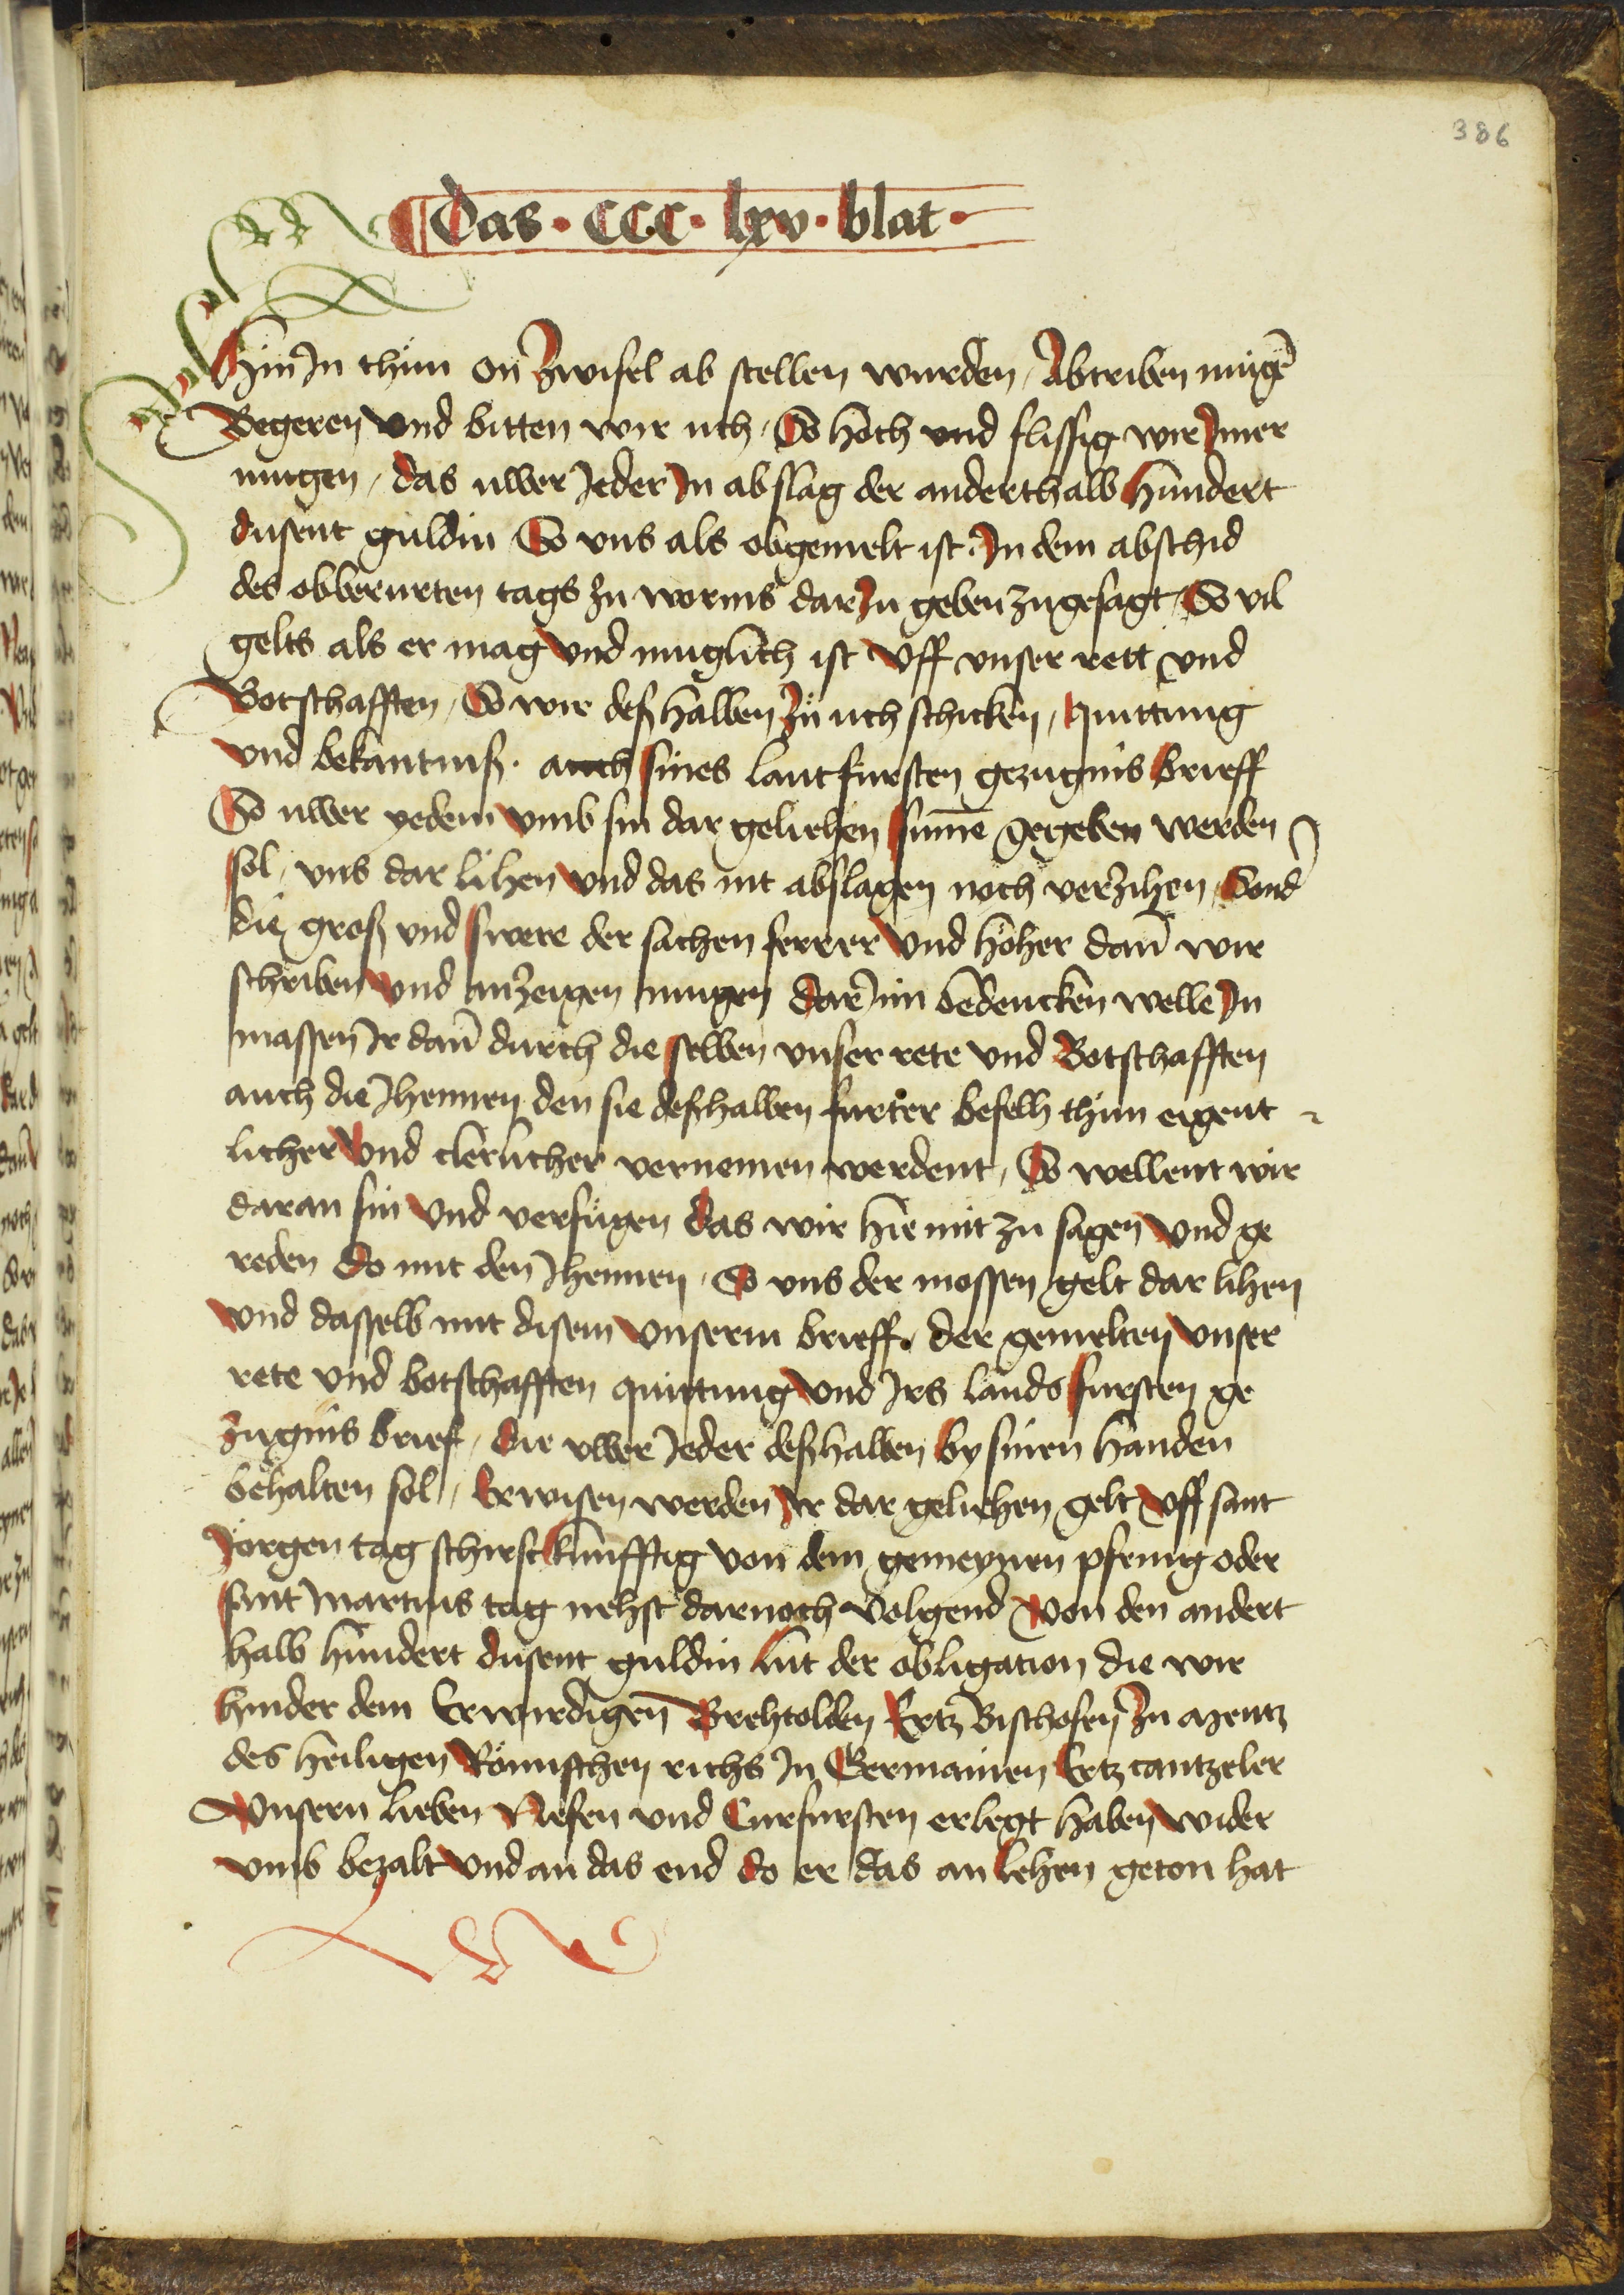 386
Das · CCC · lxv · blat ·
Hin Jn thün on̄ Zwifel ab stellen wurden / Abtriben mügē
Begeren vnd bitten wir üch / So hoch vnd flissig wir Jmer
mügen / das üwer Jeder Jn abslag der anderthalb hündert
dusent güldin So vns als obgemelt ist · Jn dem abschid
des obberürten tags zu worms dar Zu geben zugesagt / So vil
gelts als er mag vnd müglich ist Vff vnser rett vnd
Botschafften / So wir deßhalben Zü üch schicken / quittung
vnd bekantniß · auch sines lantfürsten gezügnis brieff
So üwer yedem vmb sin dar gelichen sum̄e gegeben werden
sol / vns dar lihen vnd das nit abslagen noch verzihen / Sond̄
die groß vnd swere der sachen ferrer vnd höher dan̄ wir
schriben vnd anzeigen mügen dar Jnn bedencken welle Jn
massen Jr dan̄ durch die selben vnser rete vnd Botschafften
auch die Jhennen den sie deßhalben fürter befelh thün eigent
licher vnd clerlicher vernemen werdent / So wellent wir
daran sin vnd verfügen das wir hie mit zu sagen vnd ge
reden do mit den Jhennen / So vns der mossen gelt dar lihen
vnd dasselb mit disem vnserm brieff / der gemelten vnser
rete vnd botschafften quittung vnd Jrs lands fürsten ge
zügnis brief / die vwer Jeder deßhalben by sinen handen
behalten sol / Erwisen werden Jr dar gelichen gelt vff sant
Jörgen tag schirst künfftig von dem gemeynen pfenig oder
sant martins tag nehst darnoch volgend von den andert
halb hündert düsent güldin lüt der obligation die wir
hinder dem Erwirdigen̄ Brehtolden Ertz Bischofen Zu Mentz
des heiligen Römischen richs Jn Germanien Ertz cantzeler
Vnsern lieben Nefen vnd Curfürsten erlegt haben wider
vmb bezalt vnd an das end do er das an lehen geton hat